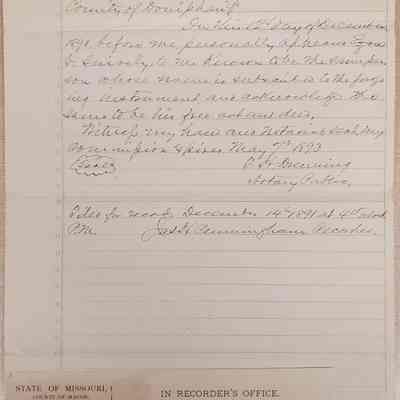 County of Doniphan
On this 12th day of December
1891 before me personally appeared
to me known to be the same per
son whose name is subscribed to the forgo
ing instrument and acknowledge the
same to be his free act and deed.
Witness my hand and Notarial Seal My
commission expires May 7th 1893
Seal
Notary Public
Filed for record December 14th 1891 at 4 o'clock
P.M. Jas H Cunningham Recorder
STATE OF MISSOURI,
COUNTY OF MACON.
IN RECORDER'S OFFICE.